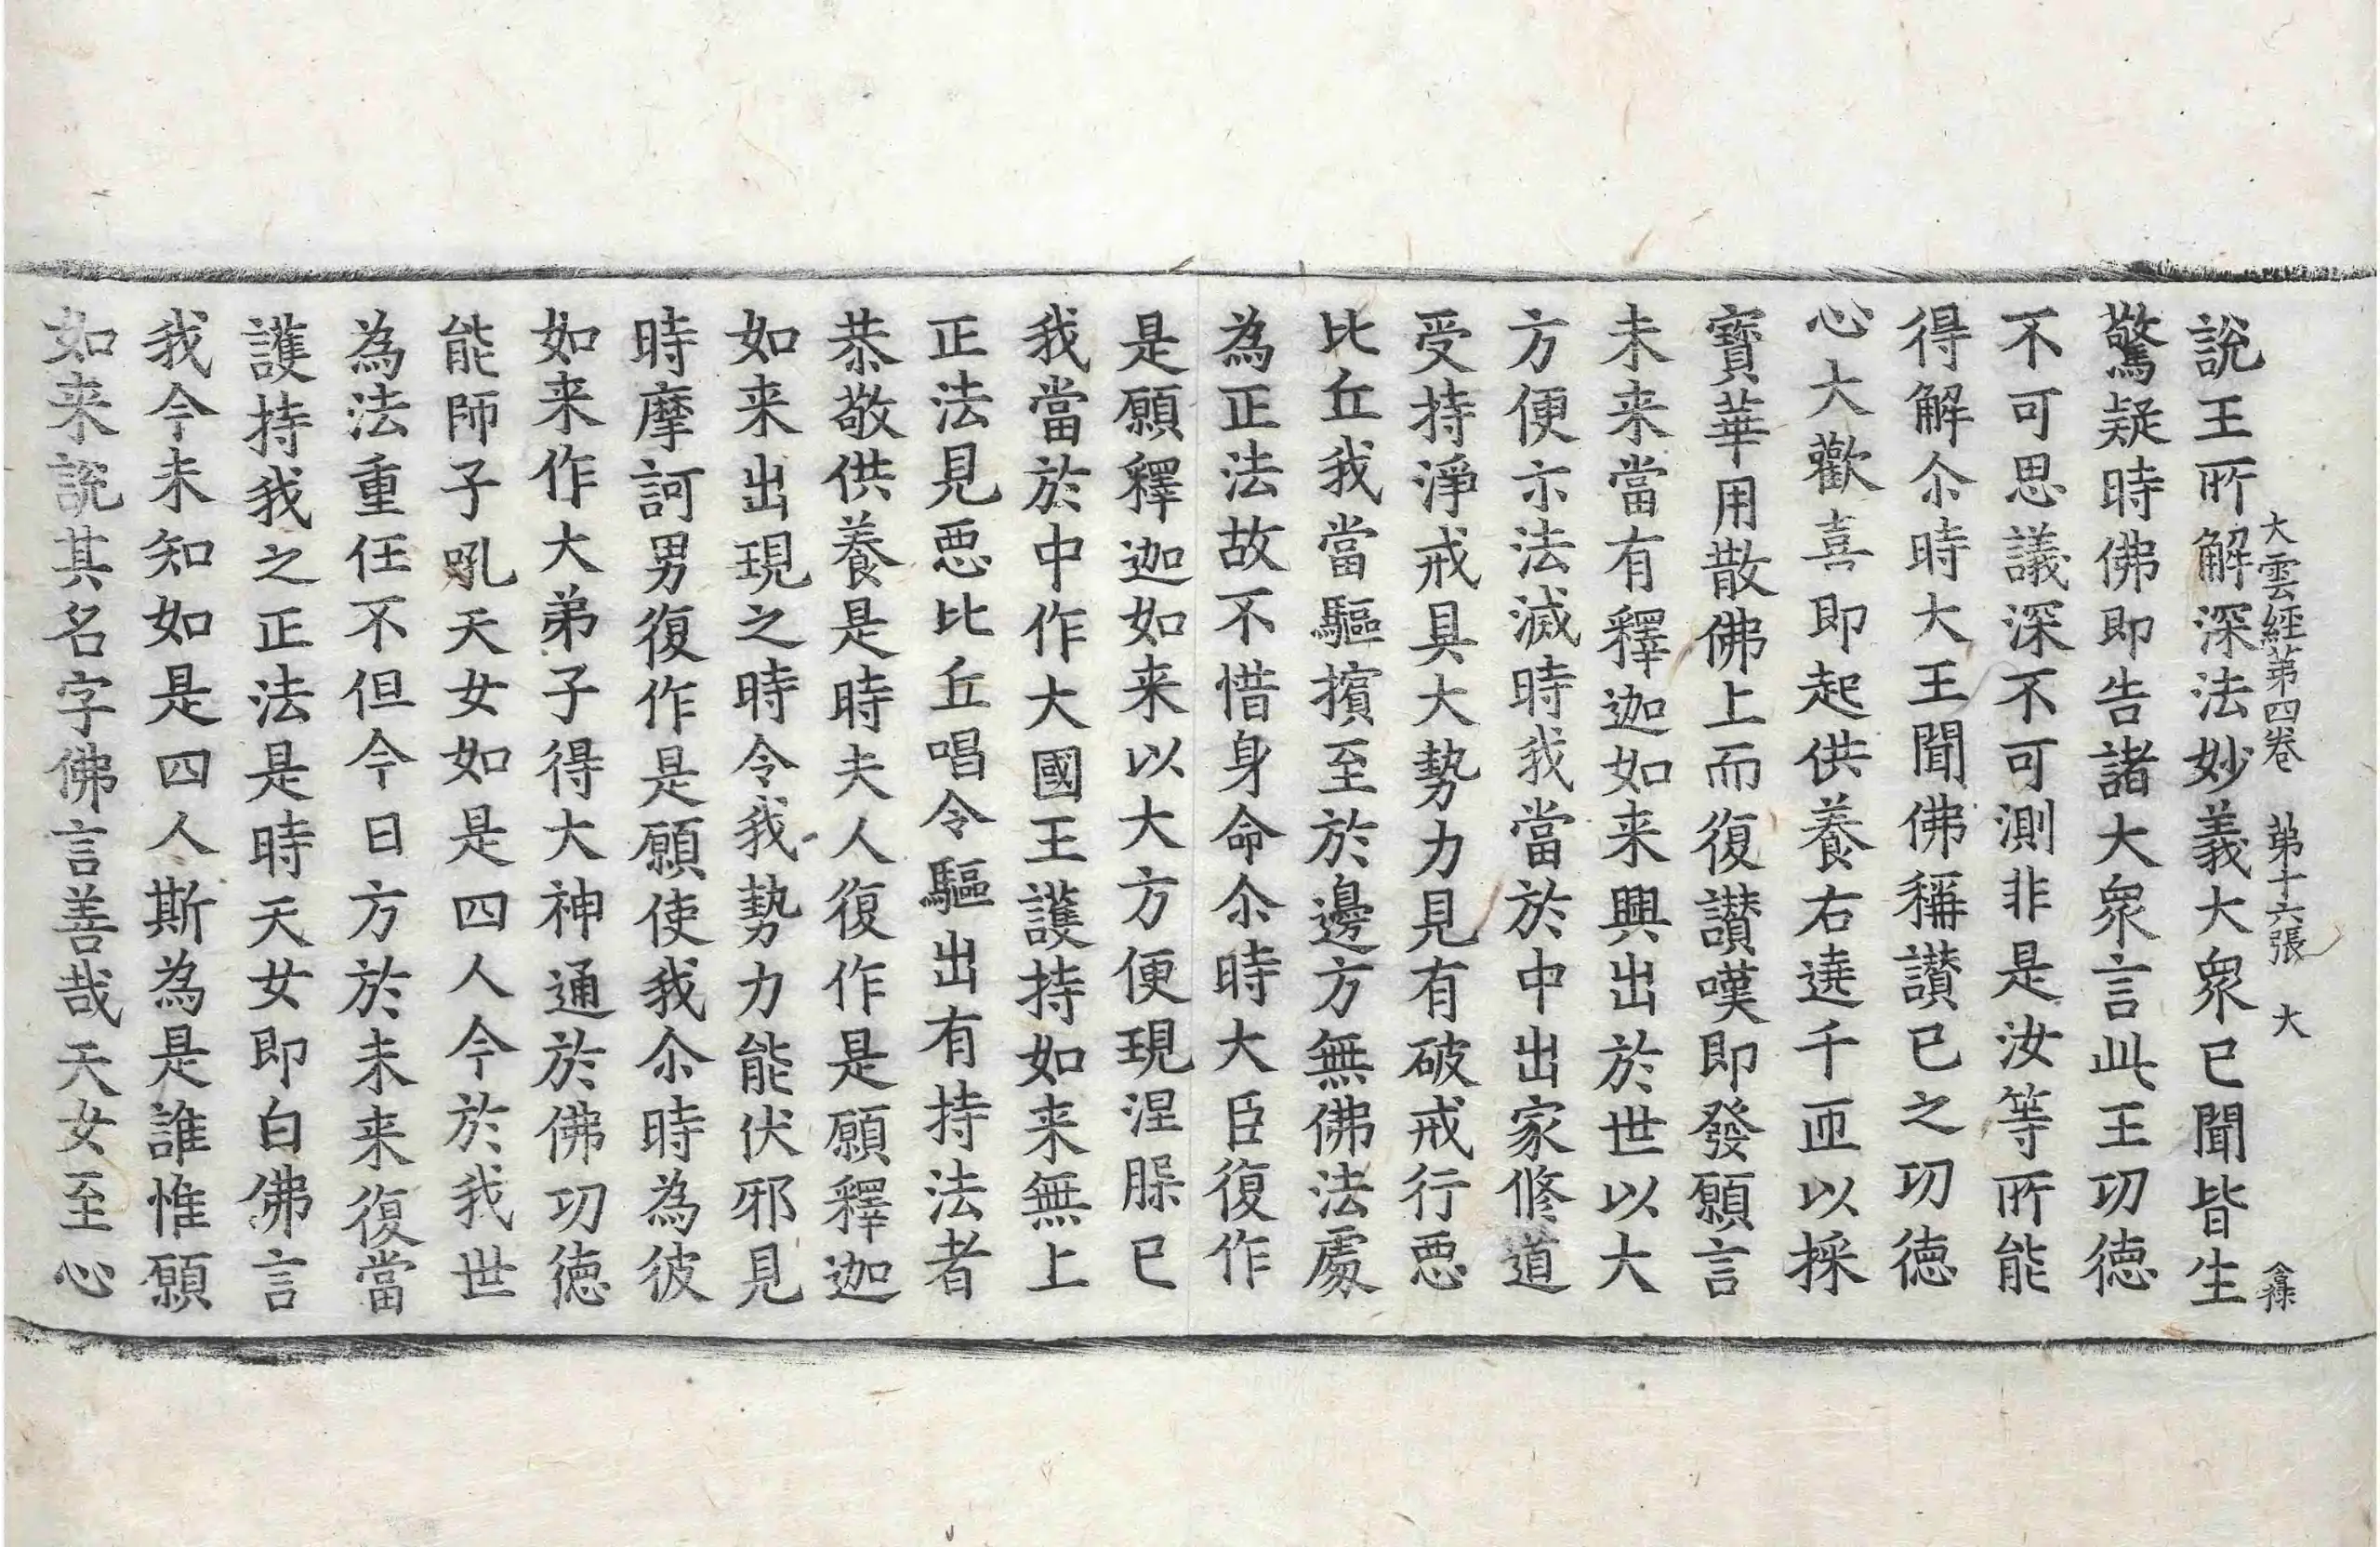 大雲經第四卷 第十六張 大
說王所解深法妙義大衆已聞皆生
驚疑時佛即告諸大衆言此王功德
不可思議深不可測非是汝等所能
得解尒時大王聞佛稱讃已之功德
心大歡喜即起供養右遶千匝以採
寶華用散佛上而復讃嘆即發願言
未来當有釋迦如来興出於世以大
方便示法滅時我當於中出家修道
受持淨戒具大勢力見有破戒行惡
比丘我當驅擯至於邊方無佛法處
為正法故不惜身命尒時大臣復作
是願釋迦如来以大方便現涅槃已
我當於中作大國王護持如来無上
正法見惡比丘唱令驅出有持法者
恭敬供養是時夫人復作是願釋迦
如来出現之時令我勢力能伏邪見
時摩訶男復作是願使我尒時為彼
如来作大弟子得大神通於佛功德
能師子吼天女如是四人今於我世
為法重任不但今日方於未来復當
護持我之正法是時天女即白佛言
我今未知如是四人斯為是誰惟願
如来說其名字佛言善哉天女至心